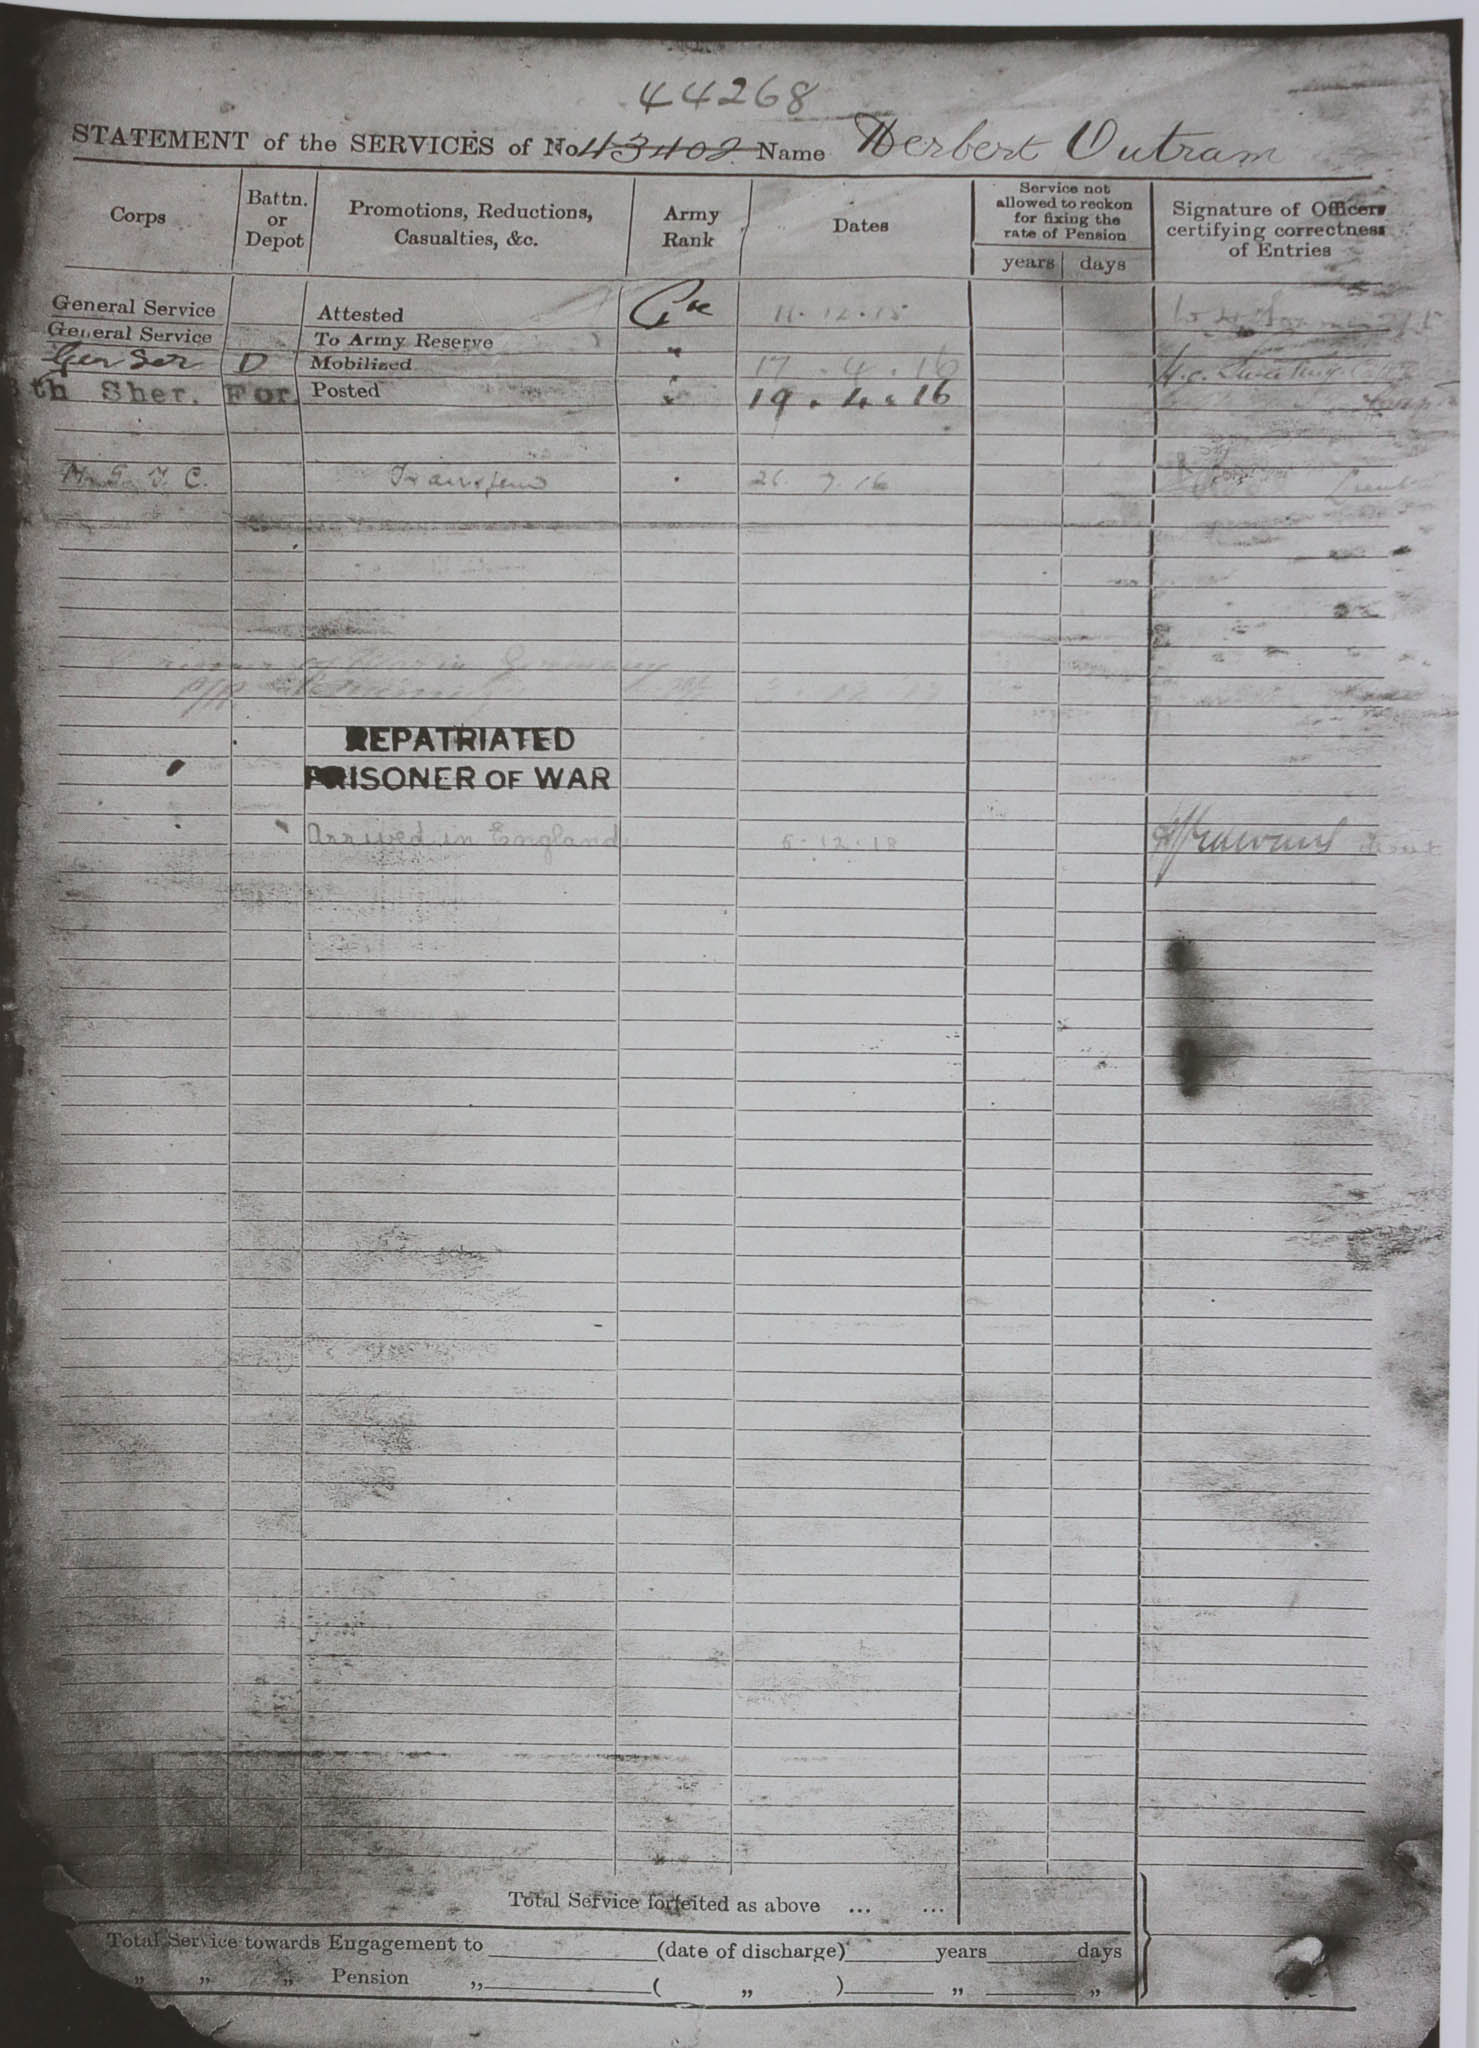 44268
STATEMENT of the SERVICES of No 43402 Name Herbert Outram
Corps
Battn. or Depot
Promotions, Reductions, Casualties, &c.
Army Rank
Dates
Service not allowed to reckon for fixing the rate of Pension
years days
Signature of Officers certifying correctness of Entries
General Service Attested Pte 11.12.15
General Service To Army Reserve "
Gen Ser D Mobilized " 17.4.16 H.C.
th Sher. For. Posted " 19.4.16
M. G. C. Transferred 26. 7. 16 Lieut
Prisoner of War in Germany
REPATRIATED
PRISONER OF WAR
Arrived in England 5.12.18
Total Service forfeited as above ... ...
Total Service towards Engagement to (date of discharge) years days
" " " Pension " ( " ) " "